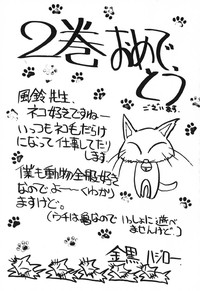 2巻おめでとう
ございます。
風鈴先生、
ネコ好きですねー
いっつもネコもだらけ
になって仕事してたり
します
僕も動物全般好き
なのでよーくわかり
ますけど。
(ウチは鳥なので いっしょに遊べ
ませんけど。)
金黒 ハシロー